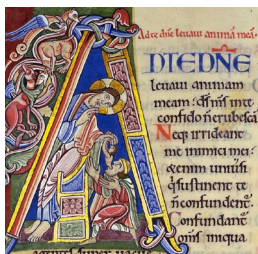 Ad te dñe leuaui animã meã.
D TE DÑE
leuaui animam
meam: ds̃ ms̃ in te
confido ñ erubescã
Neq; irrideant
me inimici mei:
etenim uniuersi
qi sustinent te
ñ confundentᷣ.
Confundant̃
om̃s iniqua